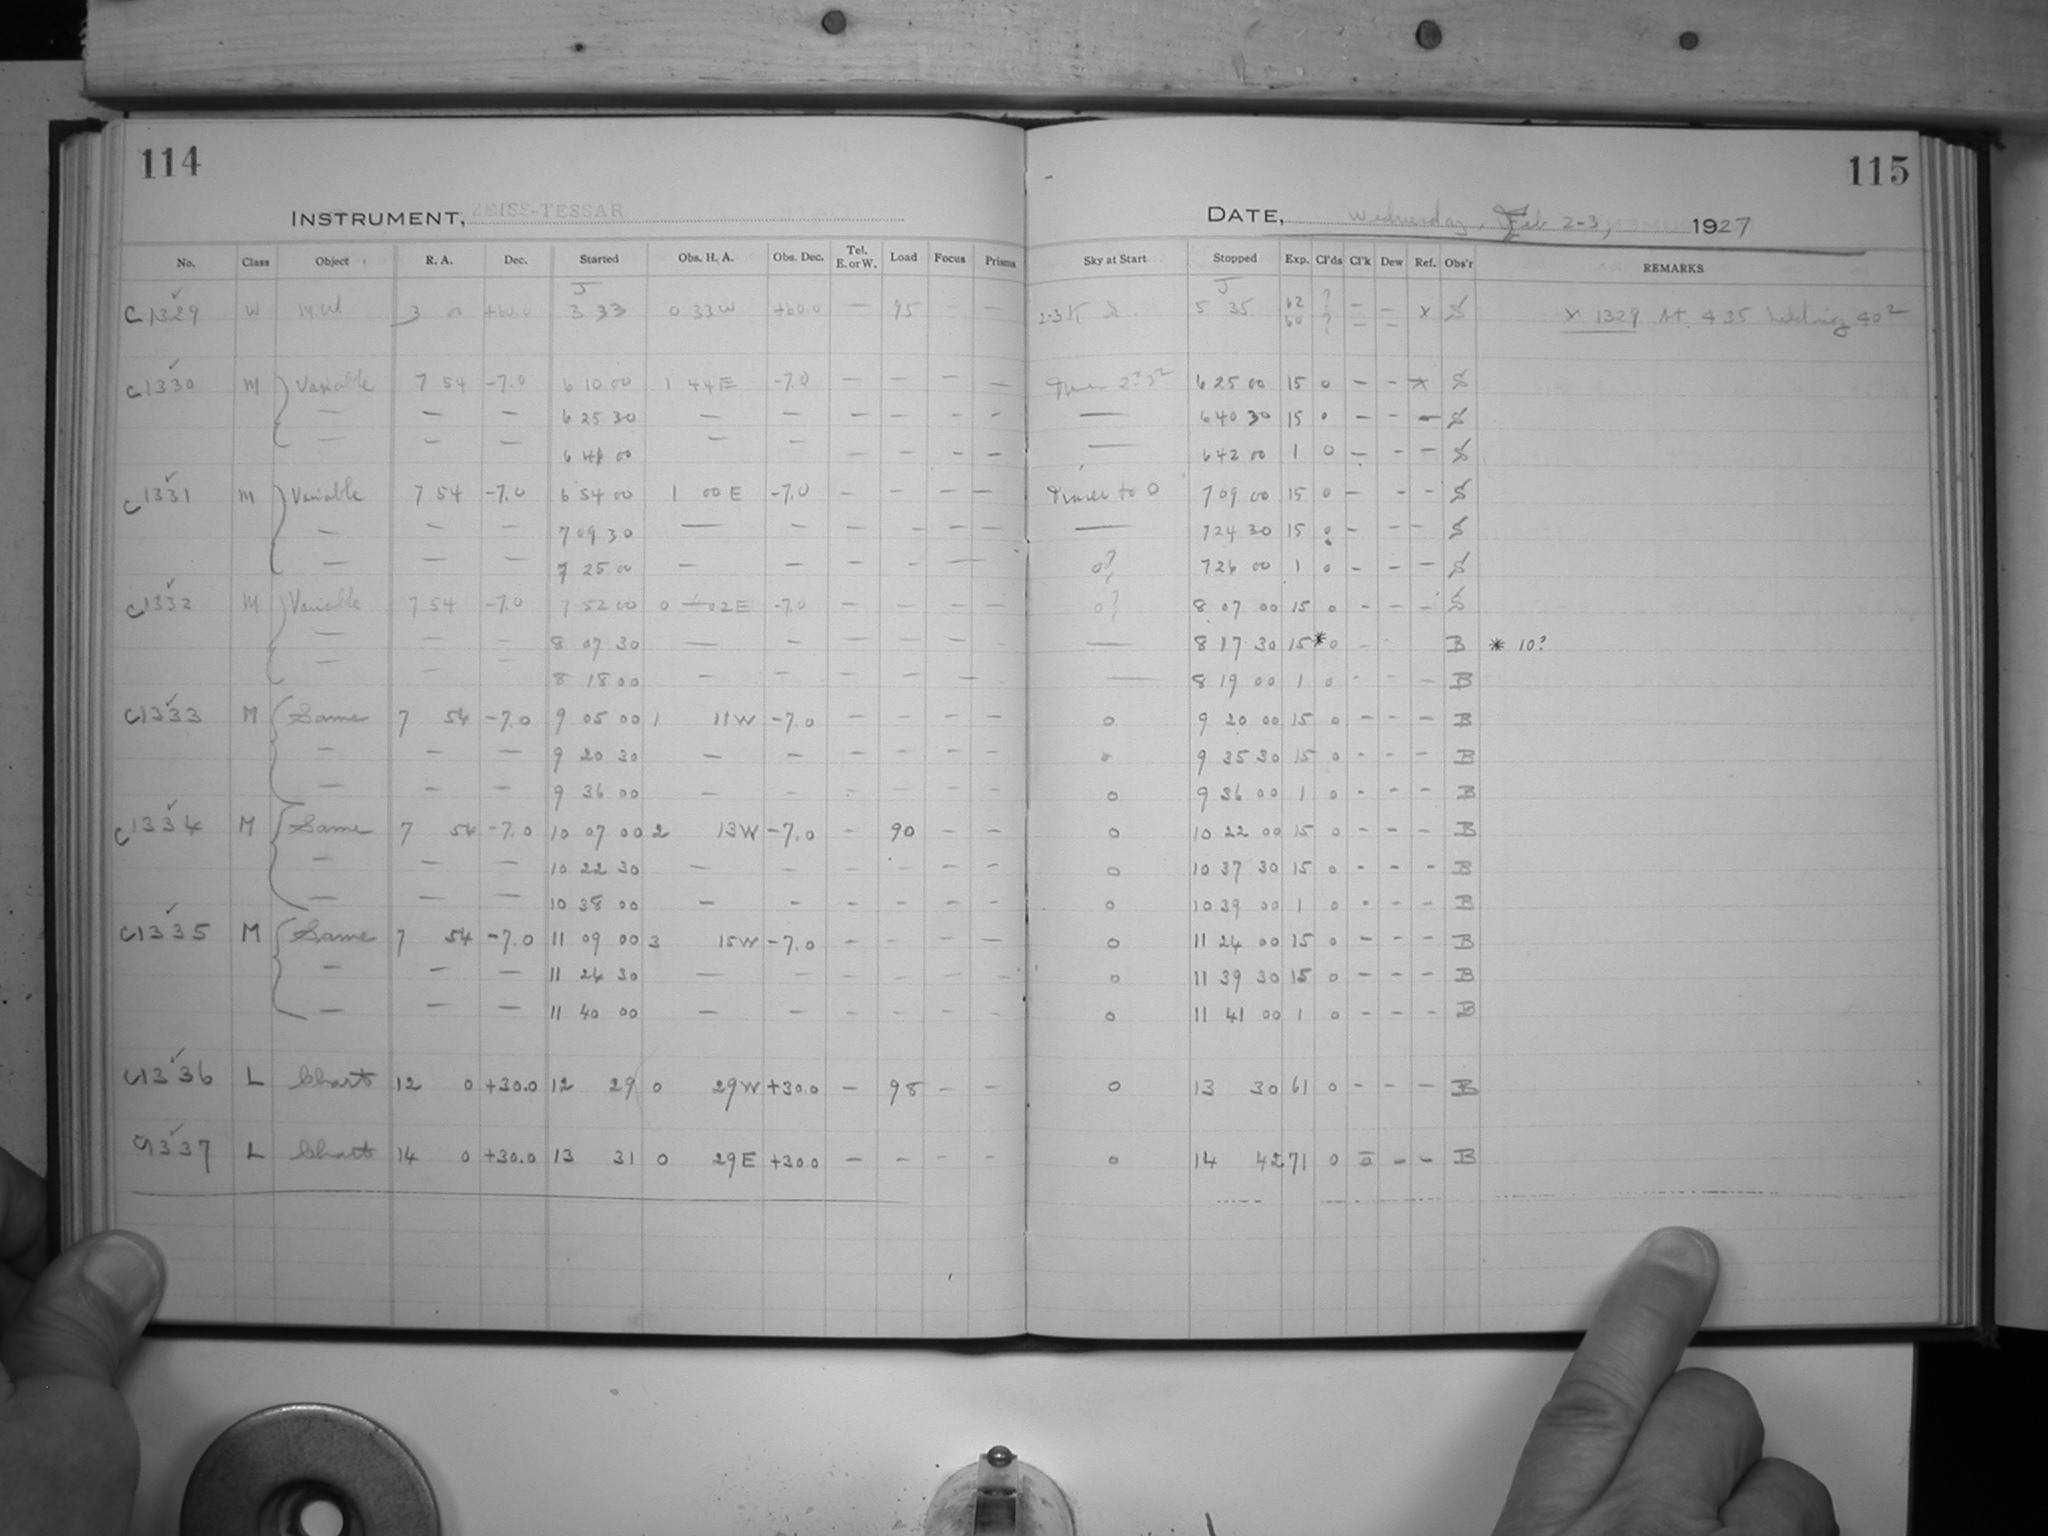 114
115
INSTRUMENT, ZEISS-TESSAR
DATE, Wednesday, Feb 2-3, 1927
No. Class Object R. A. Dec. Started Obs. H. A. Obs. Dec. Tel. E. or W. Load Focus Prisms Sky at Start Stopped Exp. Cl'ds Cl'k Dew Ref. Obs'r REMARKS
C1329 W M.W 3 00 +60.0 3 33 0 33W +60.0 — 95 — — 2-3 5 35 62 60 ? ? — — x S x 1329 At 4 35
C1330 M Variable 7 54 -7.0 6 10 00 1 44E -7.0 — — — — 6 25 00 15 0 — - x S
— — — 6 25 30 — — — — - - — 6 40 30 15 0 — - — S
— — — 6 41 00 — — — — - — — 6 42 00 1 0 — - - S
C1331 M Variable 7 54 -7.0 6 54 00 1 00E -7.0 — — — — to 0 7 09 00 15 0 — - - S
— — — 7 09 30 — — — - — — — 7 24 30 15 0 - - - S
— — — 7 25 00 — — — - — 0? 7 26 00 1 0 - - — S
C1332 M Variable 7 54 -7.0 7 52 00 0 02E -7.0 — — — — 0? 8 07 00 15 0 - - - S
— — — 8 07 30 — — — — — - — 8 17 30 15* 0 - - B * 10?
— — — 8 18 00 — — — — — — 8 19 00 1 0 - - - B
C1333 M Same 7 54 -7.0 9 05 00 1 11W -7.0 — — — — 0 9 20 00 15 0 - - - B
— — — 9 20 30 — — — — — — 0 9 35 30 15 0 - - - B
— — — 9 36 00 — — - — — — 0 9 36 00 1 0 - - - B
C1334 M Same 7 54 -7.0 10 07 00 2 13W -7.0 - 90 — — 0 10 22 00 15 0 - - - B
— — — 10 22 30 — — — — — — 0 10 37 30 15 0 - - - B
— — — 10 38 00 — - - - - - 0 10 39 00 1 0 - - - B
C1335 M Same 7 54 -7.0 11 09 00 3 15W -7.0 — - - — 0 11 24 00 15 0 - - - B
— — — 11 24 30 — — — — — — 0 11 39 30 15 0 - - - B
— — — 11 40 00 — - - - - - 0 11 41 00 1 0 - - - B
C1336 L Chart 12 0 +30.0 12 29 0 29W +30.0 — 98 - — 0 13 30 61 0 - - - B
C1337 L Chart 14 0 +30.0 13 31 0 29E +30.0 — - - - 0 14 42 71 0 0 - - B